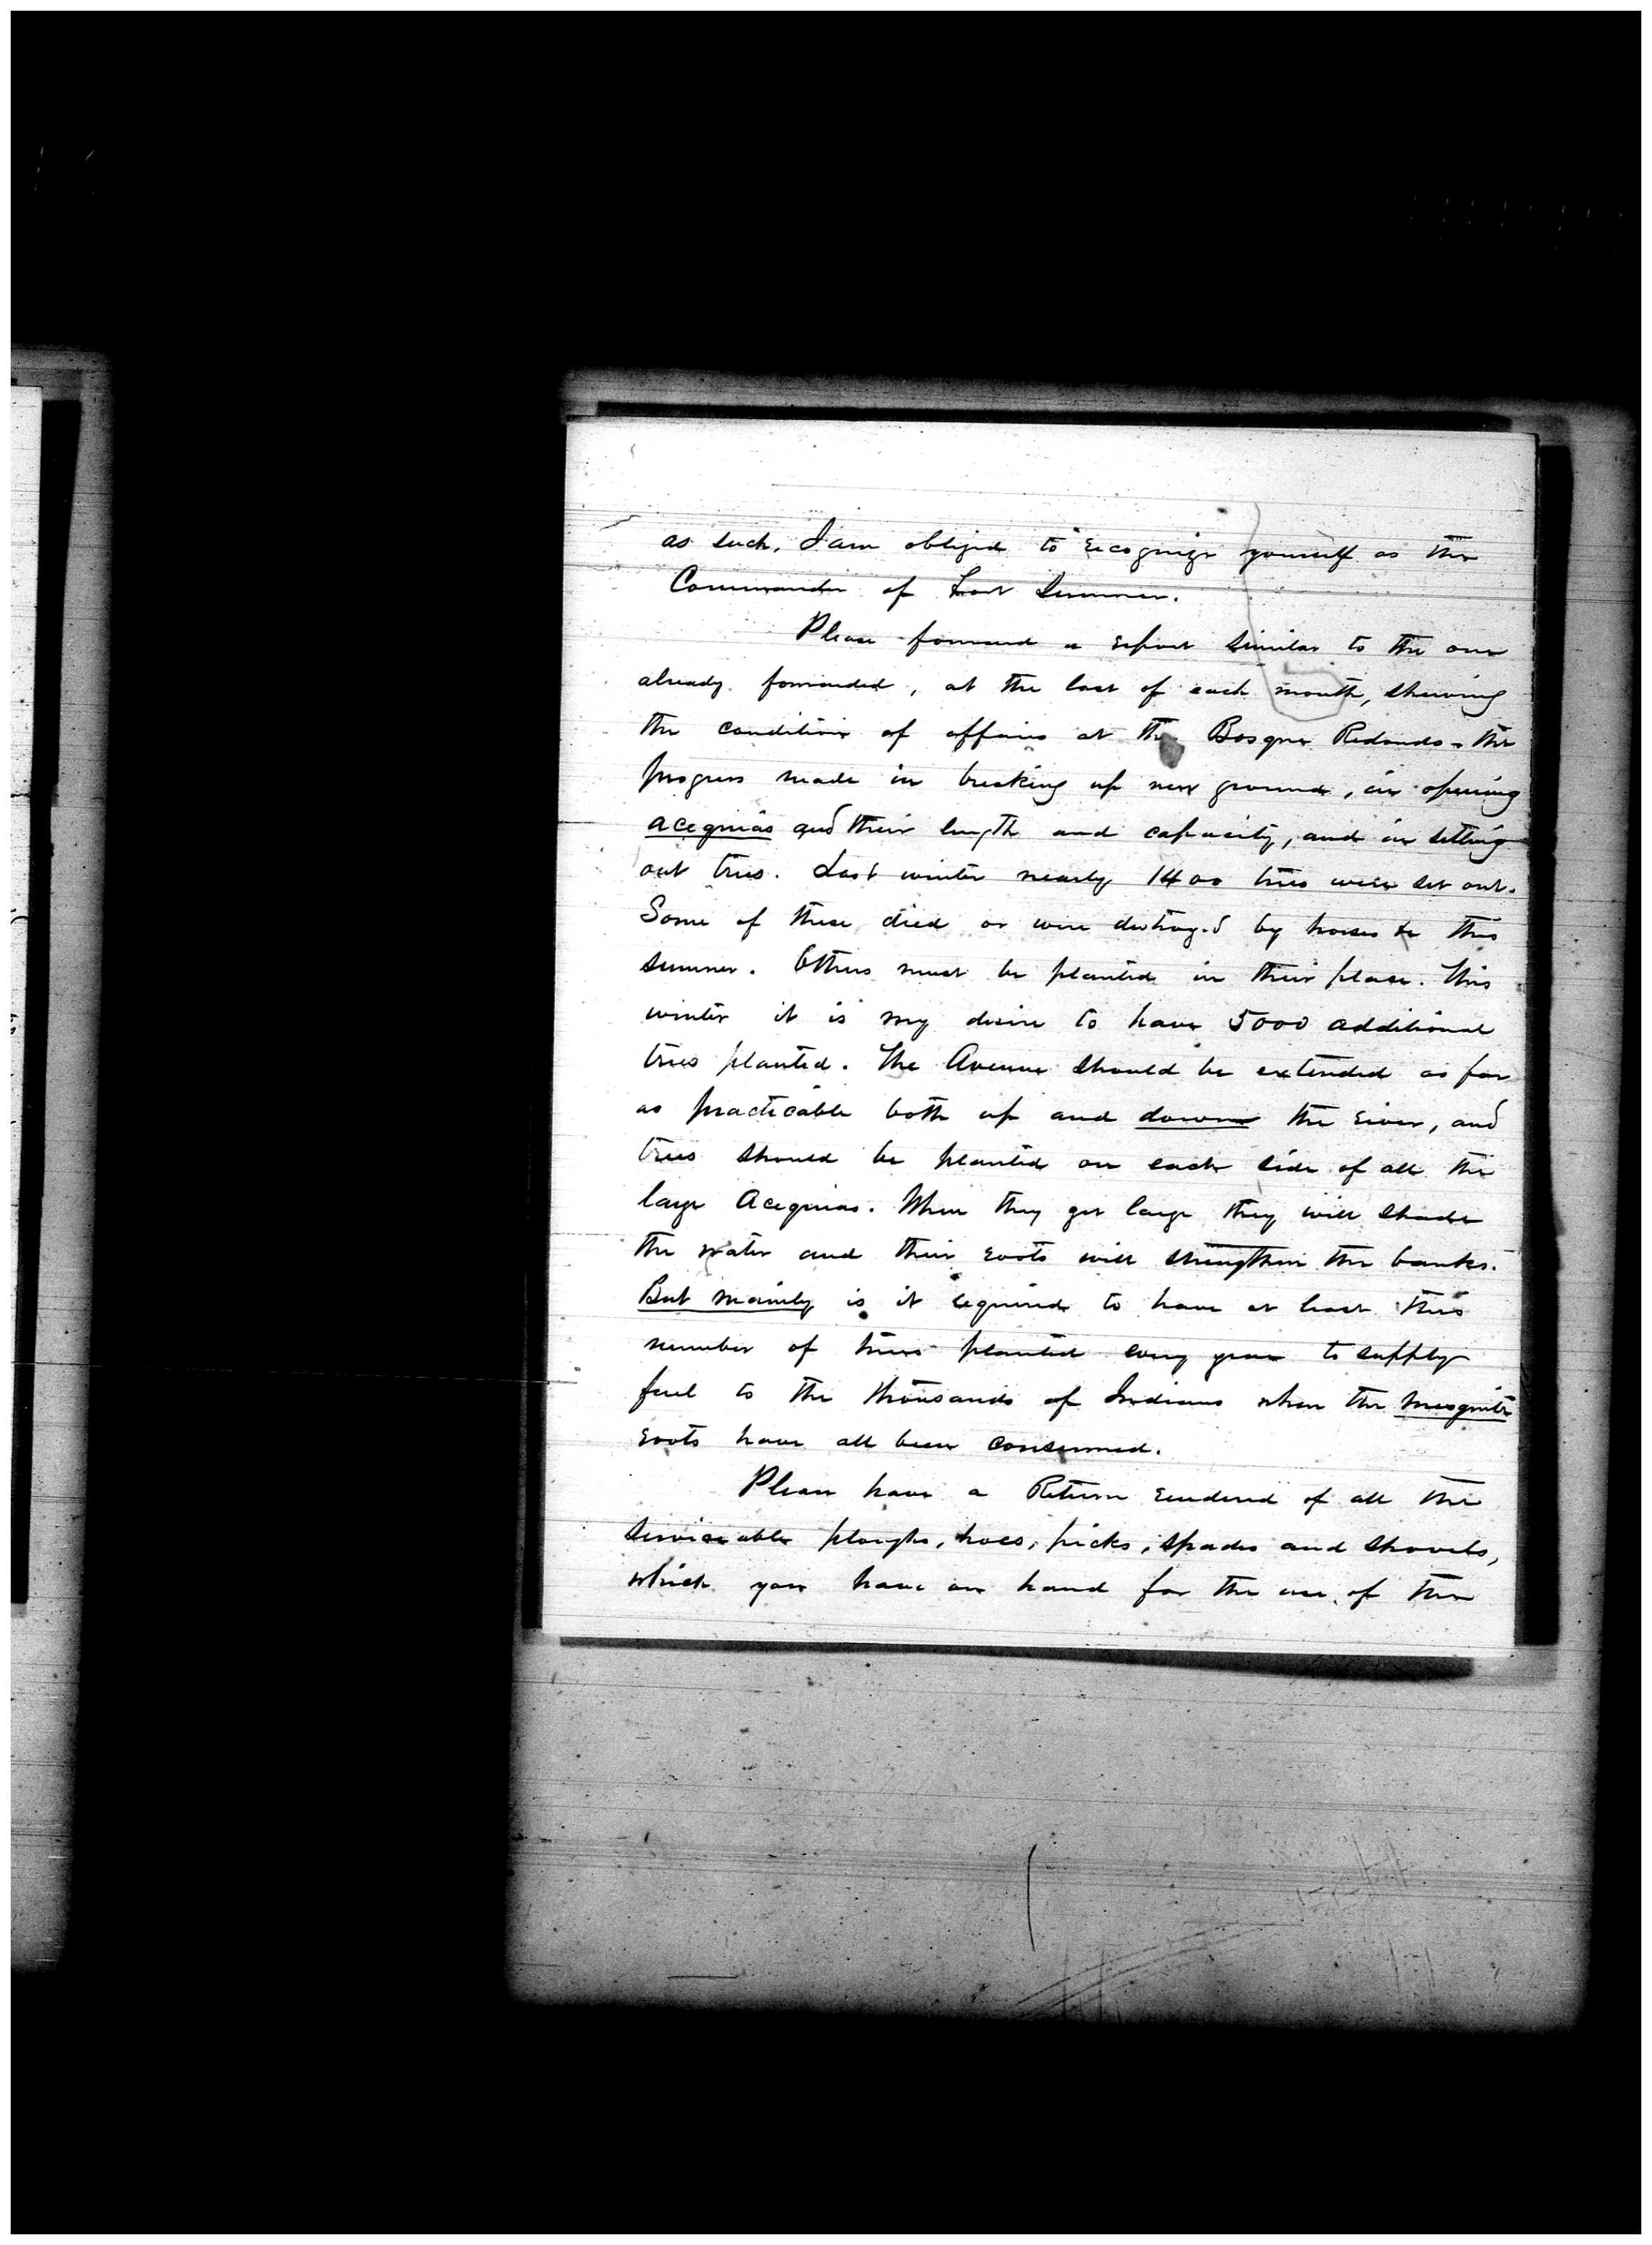 as such, I am obliged to recognize yourself as the
Commander of Fort Sumner.
Please forward a report similar to the one
already forwarded, at the last of each month, shewing
the condition of affairs at the Bosque Redondo - the
progress made in breaking up new ground, in opening
acequias and their length and capacity, and in setting
out trees. Last winter nearly 1400 trees were set out.
Some of these died or were destroyed by horses &c this
summer. Others must be planted in their place. This
winter it is my desire to have 5000 additional
trees planted. The Avenue should be extended as far
as practicable both up and down the river, and
trees should be planted on each side of all the
large Acequias. When they get large they will shade
the water and their roots will strengthen the banks.
But mainly is it required to have at least this
number of trees planted every year to supply
fuel to the thousands of Indians when the mesquite
roots have all been consumed.
Please have a Return rendered of all the
serviceable ploughs, hoes, picks, spades and shovels,
which you have on hand for the use of the